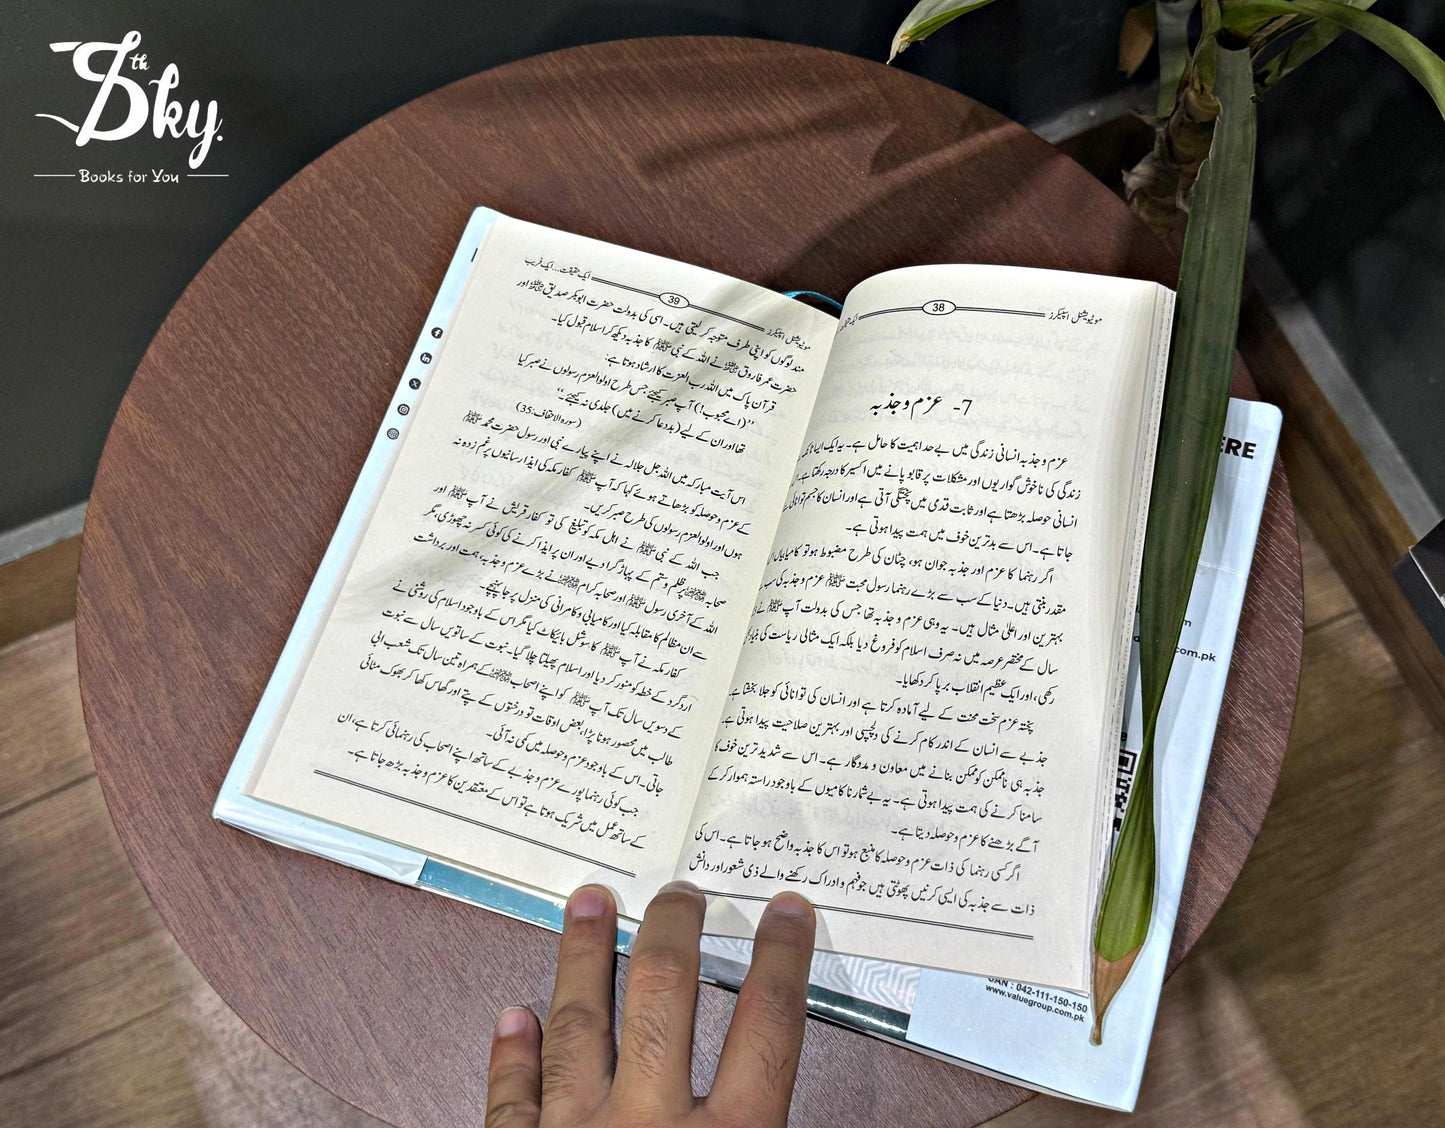 7th Sky.
Books for You
موٹیویشنل اسپیکرز
38
7- عزم و جذبہ
عزم و جذبہ انسانی زندگی میں بے حد اہمیت کا حامل ہے۔ یہ ایک ایسا
زندگی کی ناخوش گواریوں اور مشکلات پر قابو پانے میں اکسیر کا درجہ رکھتا ہے۔
انسانی حوصلہ بڑھتا ہے اور ثابت قدمی میں پختگی آتی ہے اور انسان کا جسم توانائی
جاتا ہے۔ اس سے بدترین خوف میں ہمت پیدا ہوتی ہے۔
اگر رہنما کا عزم اور جذبہ جوان ہو، چٹان کی طرح مضبوط ہو تو کامیابیاں
مقدر بنتی ہیں۔ دنیا کے سب سے بڑے رہنما رسول محبت ﷺ عزم و جذبہ کی سب
بہترین اور اعلیٰ مثال ہیں۔ یہ وہی عزم و جذبہ تھا جس کی بدولت آپ ﷺ نے
سال کے مختصر عرصہ میں نہ صرف اسلام کو فروغ دیا بلکہ ایک مثالی ریاست کی بنیاد
رکھی، اور ایک عظیم انقلاب برپا کر دکھایا۔
پختہ عزم سخت محنت کے لیے آمادہ کرتا ہے اور انسان کی توانائی کو جلا بخشتا ہے۔
جذبے سے انسان کے اندر کام کرنے کی دلچسپی اور بہترین صلاحیت پیدا ہوتی ہے۔
جذبہ ہی ناممکن کو ممکن بنانے میں معاون و مددگار ہے۔ اس سے شدید ترین خوف کا
سامنا کرنے کی ہمت پیدا ہوتی ہے۔ یہ بے شمار ناکامیوں کے باوجود راستہ ہموار کر کے
آگے بڑھنے کا عزم و حوصلہ دیتا ہے۔
اگر کسی رہنما کی ذات عزم و حوصلہ کا منبع ہو تو اس کا جذبہ واضح ہو جاتا ہے۔ اس کی
ذات سے جذبہ کی ایسی کرنیں پھوٹتی ہیں جو فہم و ادراک رکھنے والے ذی شعور اور دانش
موٹیویشنل اسپیکرز
39
ایک حقیقت... ایک فریب
مند لوگوں کو اپنی طرف متوجہ کر لیتی ہیں۔ اسی کی بدولت حضرت ابوبکر صدیق ؓ اور
حضرت عمر فاروق ؓ نے اللہ کے نبی ﷺ کا جذبہ دیکھ کر اسلام قبول کیا۔
قرآن پاک میں اللہ رب العزت کا ارشاد ہوتا ہے:
’’(اے محبوب!) آپ صبر کیجئے جس طرح اولوالعزم رسولوں نے صبر کیا
تھا اور ان کے لیے (بددعا کرنے میں) جلدی نہ کیجئے۔‘‘
(سورہ الاحقاف:35)
اس آیت مبارکہ میں اللہ جل جلالہ نے اپنے پیارے نبی اور رسول حضرت محمد ﷺ
کے عزم و حوصلہ کو بڑھاتے ہوئے کہا کہ آپ ﷺ کفار مکہ کی ایذا رسانیوں پر غم زدہ نہ
ہوں اور اولوالعزم رسولوں کی طرح صبر کریں۔
جب اللہ کے نبی ﷺ نے اہل مکہ کو تبلیغ کی تو کفار قریش نے آپ ﷺ اور
صحابہ ؓ پر ظلم و ستم کے پہاڑ گرا دیے اور ان پر ایذا کرنے کی کوئی کسر نہ چھوڑی، مگر
اللہ کے آخری رسول ﷺ اور صحابہ کرام ؓ نے بڑے عزم و جذبہ، ہمت اور برداشت
سے ان مظالم کا مقابلہ کیا اور کامیابی و کامرانی کی منزل پر جا پہنچے۔
کفار مکہ نے آپ ﷺ کا سوشل بائیکاٹ کیا مگر اس کے باوجود اسلام کی روشنی نے
اردگرد کے خطہ کو منور کر دیا اور اسلام پھیلتا چلا گیا۔ نبوت کے ساتویں سال سے نبوت
کے دسویں سال تک آپ ﷺ کو اپنے اصحاب ؓ کے ہمراہ تین سال تک شعب ابی
طالب میں محصور ہونا پڑا، بعض اوقات تو درختوں کے پتے اور گھاس کھا کر بھوک مٹائی
جاتی۔ اس کے باوجود عزم و حوصلہ میں کمی نہ آئی۔
جب کوئی رہنما پورے عزم و جذبے کے ساتھ اپنے اصحاب کی رہنمائی کرتا ہے، ان
کے ساتھ عمل میں شریک ہوتا ہے تو اس کے معتقدین کا عزم و جذبہ بڑھ جاتا ہے۔
ERE
com.pk
UAN : 042-111-150-150
www.valuegroup.com.pk